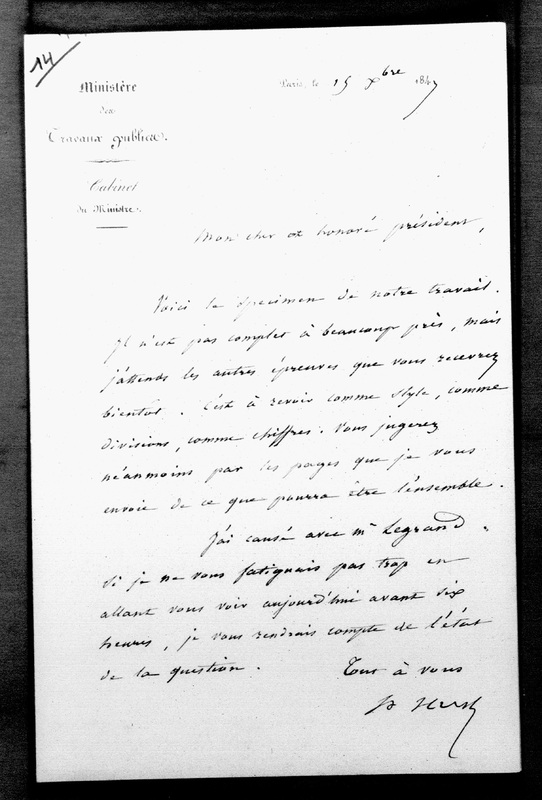 14
Ministère
des
Travaux publics.
Cabinet
du Ministre.
Paris, le 15 Xbre 1847
Mon cher et honoré président,
Voici le specimen de notre travail.
Il n'est pas complet à beaucoup près, mais
j'attends les autres épreuves que vous recevrez
bientot. C'est à revoir comme style, comme
divisions, comme chiffres. Vous jugerez
néanmoins par les pages que je vous
envoie de ce que pourra être l'ensemble.
J'ai causé avec mr Legrand.
Si je ne vous fatiguais pas trop en
allant vous voir aujourd'hui avant six
heures, je vous rendrais compte de l'état
de la question.
Tout à vous